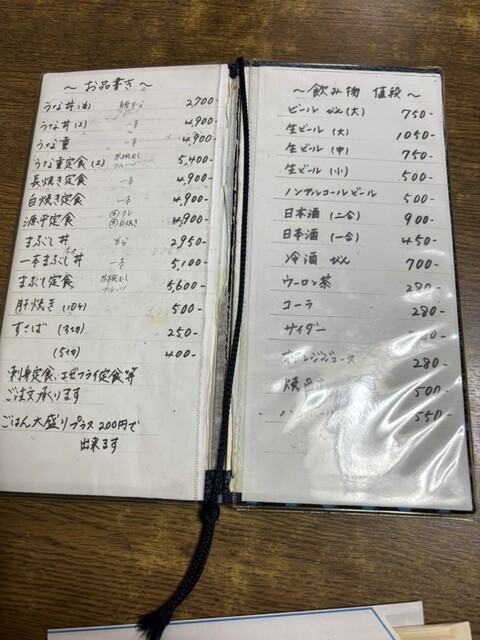 〜 お品書き 〜
うな丼 2,700
うな丼(上) 一本 4,900-
うな重 4,900-
うな重定食(上) 5,400-
長焼き定食 一本 4,900-
白焼き定食 一本 4,900-
源平定食 4,900-
まぶし丼 2,950-
一本まぶし丼 一本 5,100-
まぶし定食 5,600-
肝焼き 500-
すきば (3切) 250-
(5切) 400-
刺身定食、エビフライ定食等
ご注文承ります
ごはん大盛りプラス200円で
出来ます
〜飲み物 値段〜
ビール びん(大) 750-
生ビール (大) 1050-
生ビール (中) 750-
生ビール (小) 500-
ノンアルコールビール 500-
日本酒 (二合) 900-
日本酒 (一合) 450-
冷酒 びん 700-
ウーロン茶 280-
コーラ 280-
サイダー
280-
500-
550-